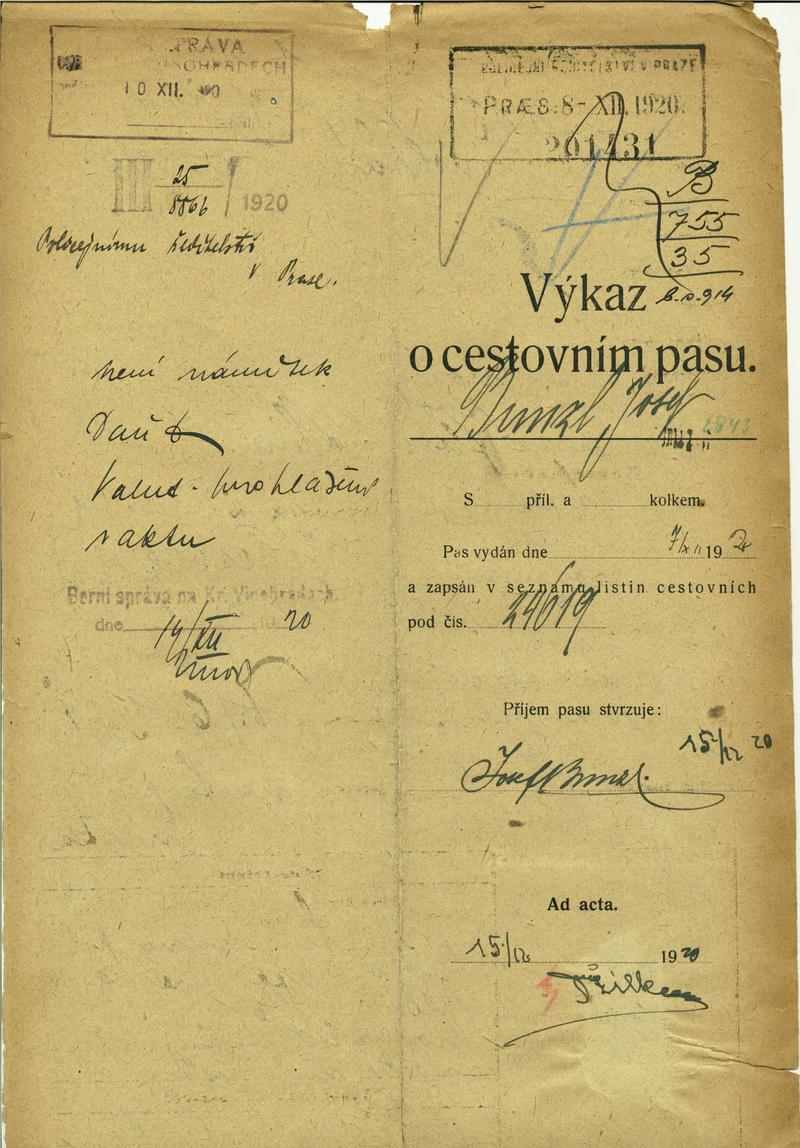 SPRÁVA
10 XII.
III 25/8866 / 1920
Policejnímu ředitelství
v Praze.
není námitek
Daň
Valut. prohlášení
v aktu
Berní správa na Kr. Vinohradech.
dne 14/XII 20
POLICEJNÍ ŘEDITELSTVÍ V PRAZE
PRÆS. 8-XII. 1920.
201431
B
755
35
Výkaz
o cestovním pasu.
Bunzl Josef
S příl. a kolkem.
Pas vydán dne 1920
a zapsán v seznamu listin cestovních
pod čís. 24619
Příjem pasu stvrzuje:
15/12 20
Josef Bunzl.
Ad acta.
15/12 1920